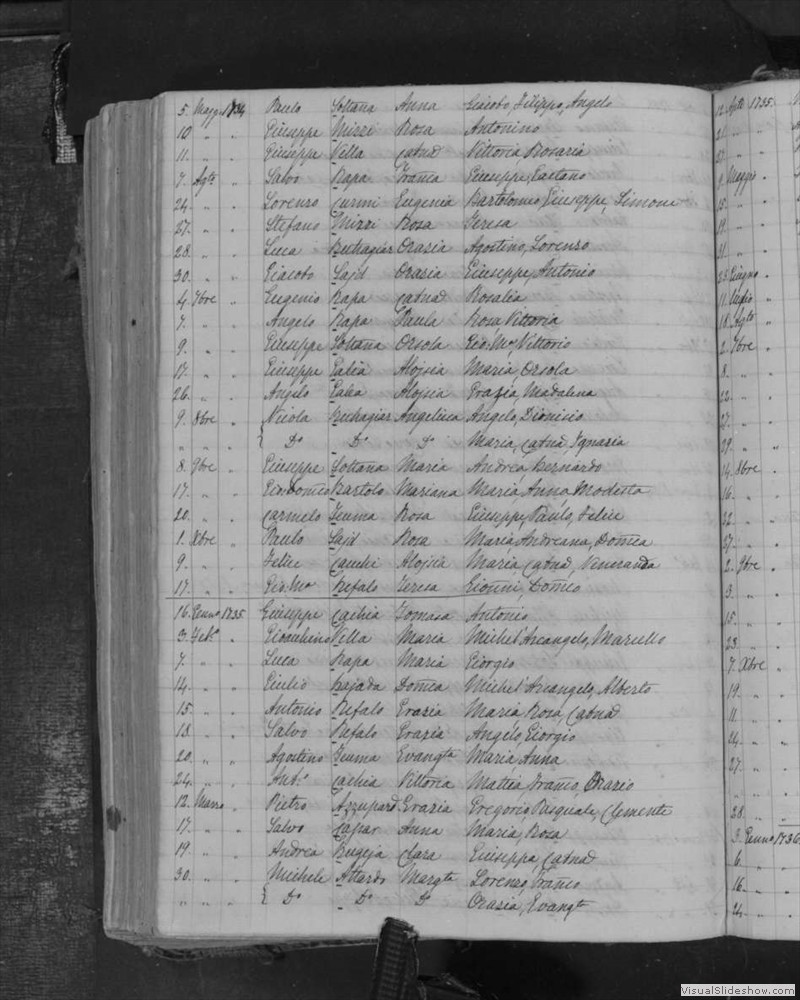 5. Maggio 1734 Paulo Soltana Anna Giacobo, Filippo, Angelo
10 " " Giuseppe Mizzi Rosa Antonino
11. " " Giuseppe Vella Catnd Vittoria Rosaria
7. Agto " Salvo Rapa Franca Giuseppe, Gaetano
24. " " Lorenzo Curmi Eugenia Bartolomeo, Giuseppe, Simone
27. " " Stefano Mizzi Rosa Teresa
28. " " Luca Buhagiar Orazia Agostino, Lorenzo
30. " " Giacobo Sajd Orazia Giuseppe, Antonio
4. 7bre " Eugenio Rapa Catnd Rosalia
7. " " Angelo Rapa Paula Rosa Vittoria
9. " " Giuseppe Soltana Orsola Gio: Ma, Vittorio
17. " " Giuseppe Galea Alojsia Maria, Orsola
26. " " Angelo Galea Alojsia Grazia, Madalena
9. 8bre " Nicola Buhagiar Angelica Angelo, Dionisio
" " " { Do Do Do Maria, Catnd, Ignazia
8. 9bre " Giuseppe Soltana Maria Andrea, Bernardo
17. " " Gio: Domco Bartolo Mariana Maria, Anna, Modesta
20. " " Carmelo Zeuma Rosa Giuseppe, Paulo, Felice
1. Xbre " Paulo Sajd Rosa Maria Andreana, Domca
9. " " Felice Cauchi Alojsia Maria Catnd, Veneranda
17. " " Gio: Ma Refalo Teresa Gionni, Domco
16. Genno 1735 Giuseppe Cachia Tomasa Antonio
3. Febo " Gioachino Vella Maria Michel'Arcangelo, Marcello
7. " " Luca Rapa Maria Giorgio
14. " " Giulio Bajada Domca Michel'Arcangelo, Alberto
15. " " Antonio Refalo Grazia Maria Rosa, Catnd
18. " " Salvo Refalo Grazia Angelo, Giorgio
20. " " Agostino Zeuma Evangta Maria Anna
24. " " Anto Cachia Vittoria Mattia, Franco, Orazio
12. Marzo " Pietro Azzupard Grazia Gregorio, Pasquale, Clemente
17. " " Salvo Caspar Anna Maria, Rosa
19 " " Andrea Bugeja Clara Giuseppa, Catnd
30. " " Michele Attardo Margta Lorenzo, Franco
" " " { Do Do Do Orazia, Evangta
12. Aple 1735.
9. Maggio
15.
19.
31.
11. Luglio
18. Agto
2. 7bre
8.
22.
27.
29.
14. 8bre
16.
22.
27.
2. 9bre
3.
15.
23.
7. Xbre
19.
11.
24.
27.
28.
3. Genno 1736.
6.
16.
24.
VisualSlideshow.com